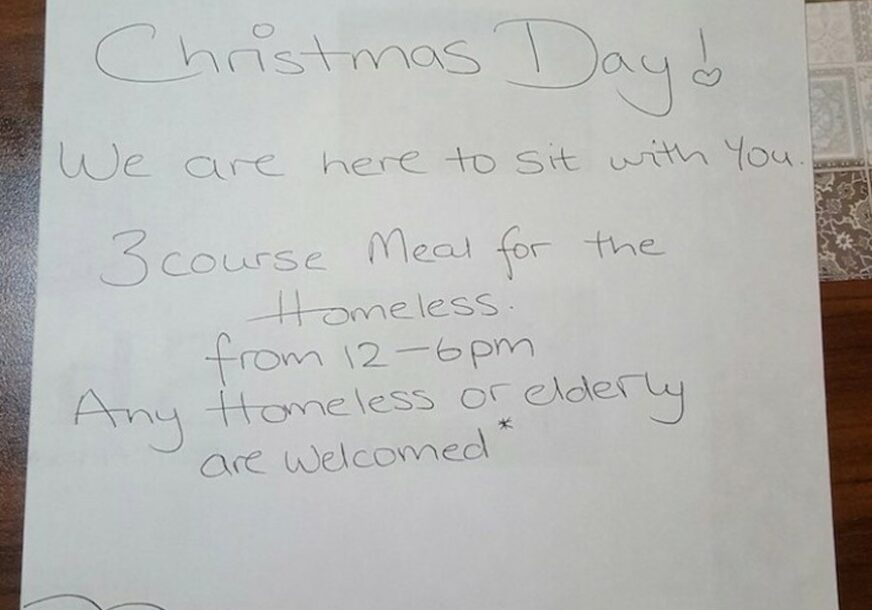 Christmas Day!
We are here to sit with You.
3 course Meal for the
Homeless.
from 12-6pm
Any Homeless or elderly
are welcomed*